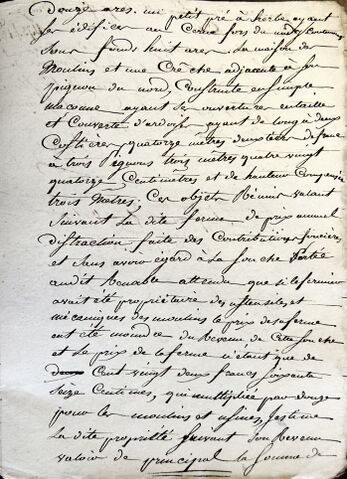 Douze ares. un petit pré à herbe ayant
les édifices au Cerne fors du midy Contenant
Sous fonds huit ares. La maison de
Moulins et une Crêche adjacente à son
pignon du nord, Construite en simple
maconne ayant ses ouvertures en taille
et Couverte d'ardoise ayant de long à deux
Costières quatorze mêtres de franc
à trois Pignons trois mêtres quatre vingt
quatorze Centimêtres et de hauteur Compensée
trois Mêtres. Ces objets Réunis valant
Suivant La dite ferme de prix annuel
distraction faite des Contributions foncières
et sans avoir égard à La Souche
audit tenable attendu que si le fermier
avait été propriétaire des ustensiles, et
mécaniques des moulins le prix de sa ferme
eut été moindre du Revenu de Cette Souche
et Le prix de la ferme n'étant que de
Cent vingt deux francs soixante
seize Centimes, qui multipliés par douze
pour les moulins et usines, J'estime
La dite propriété Suivant Son Revenu
valoir de principal la Somme de